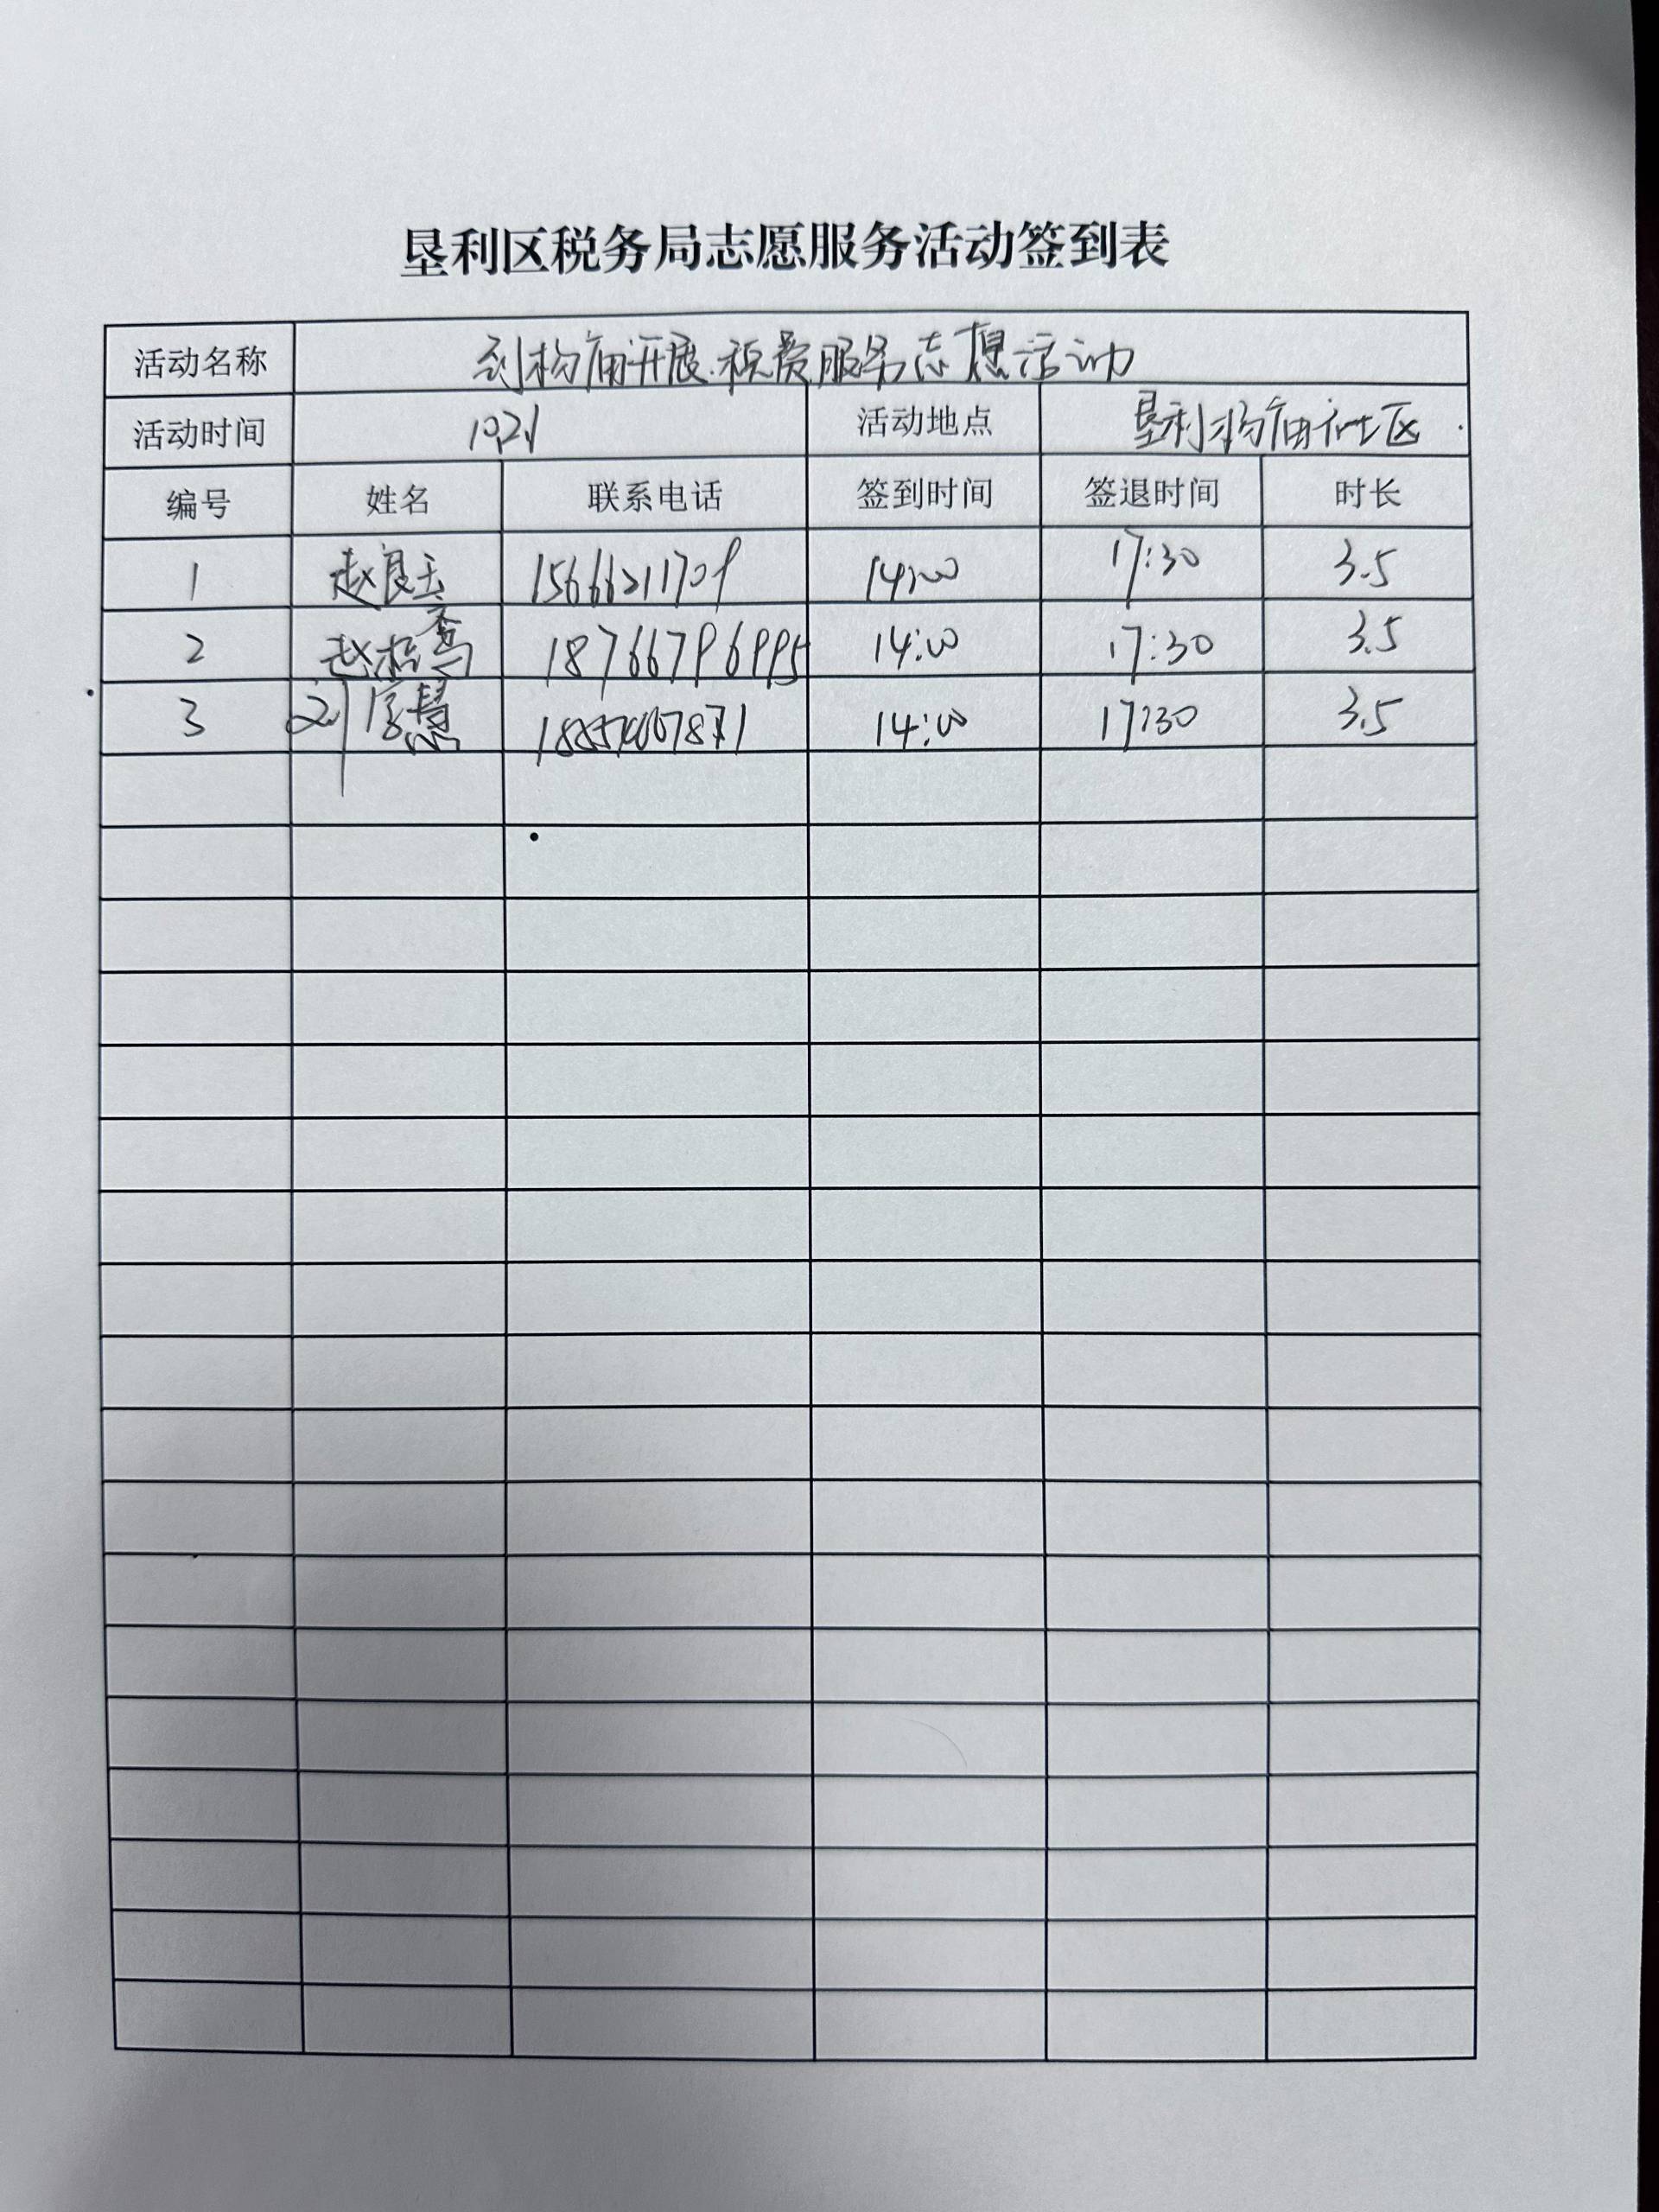 垦利区税务局志愿服务活动签到表
活动名称 到杨庙开展税费服务志愿活动
活动时间 10.21 活动地点 垦利杨庙社区
编号 姓名 联系电话 签到时间 签退时间 时长
1 赵良玉 15666211709 14:00 17:30 3.5
2 赵松 18766796995 14:00 17:30 3.5
3 刘 慧 14:00 17:30 3.5